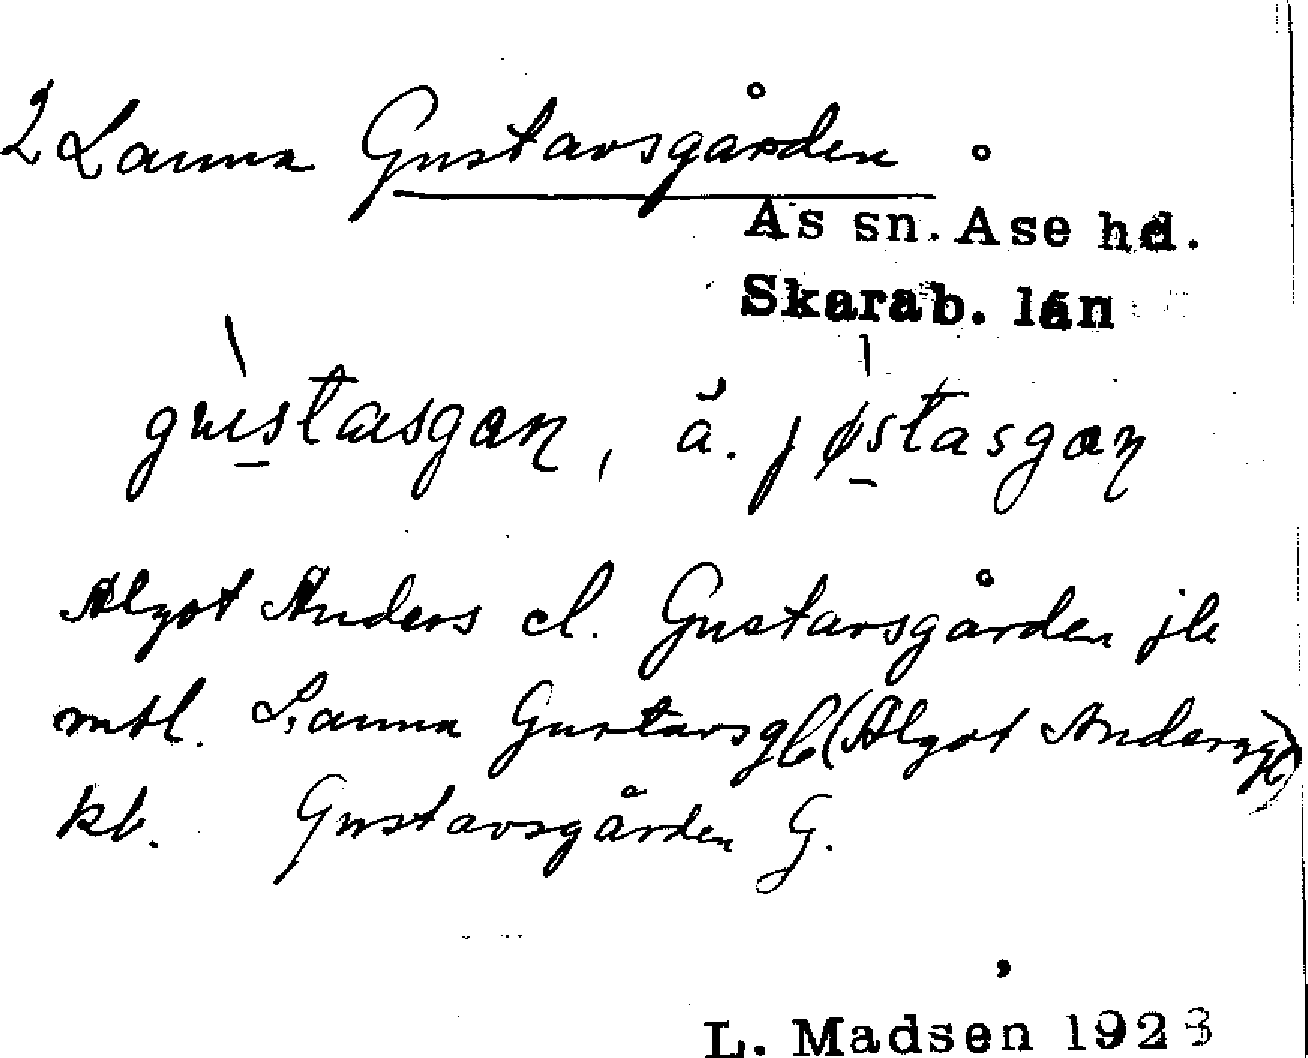 2 Lanna Gustavsgården
Ås sn. Åse hd.
Skarab. län
gustasgaɳ, ä. jøstasgaɳ
Algot Anders el. Gustavsgården jb
mtl. Lanna Gustavsgb (Algot Andersg)
kb. Gustavsgården G.
L. Madsen 1923